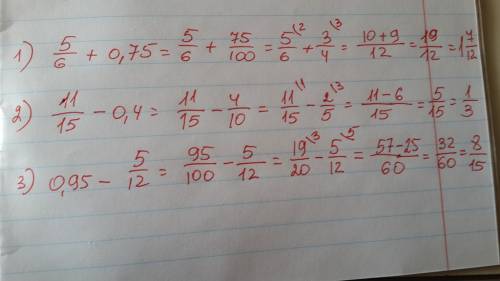 1) 5/6 + 0,75 = 5/6 + 75/100 = 5\2/6 + 3\3/4 = 10+9/12 = 19/12 = 1 7/12
2) 11/15 − 0,4 = 11/15 − 4/10 = 11\1/15 − 2\3/5 = 11−6/15 = 5/15 = 1/3
3) 0,95 − 5/12 = 95/100 − 5/12 = 19\3/20 − 5\5/12 = 57−25/60 = 32/60 = 8/15